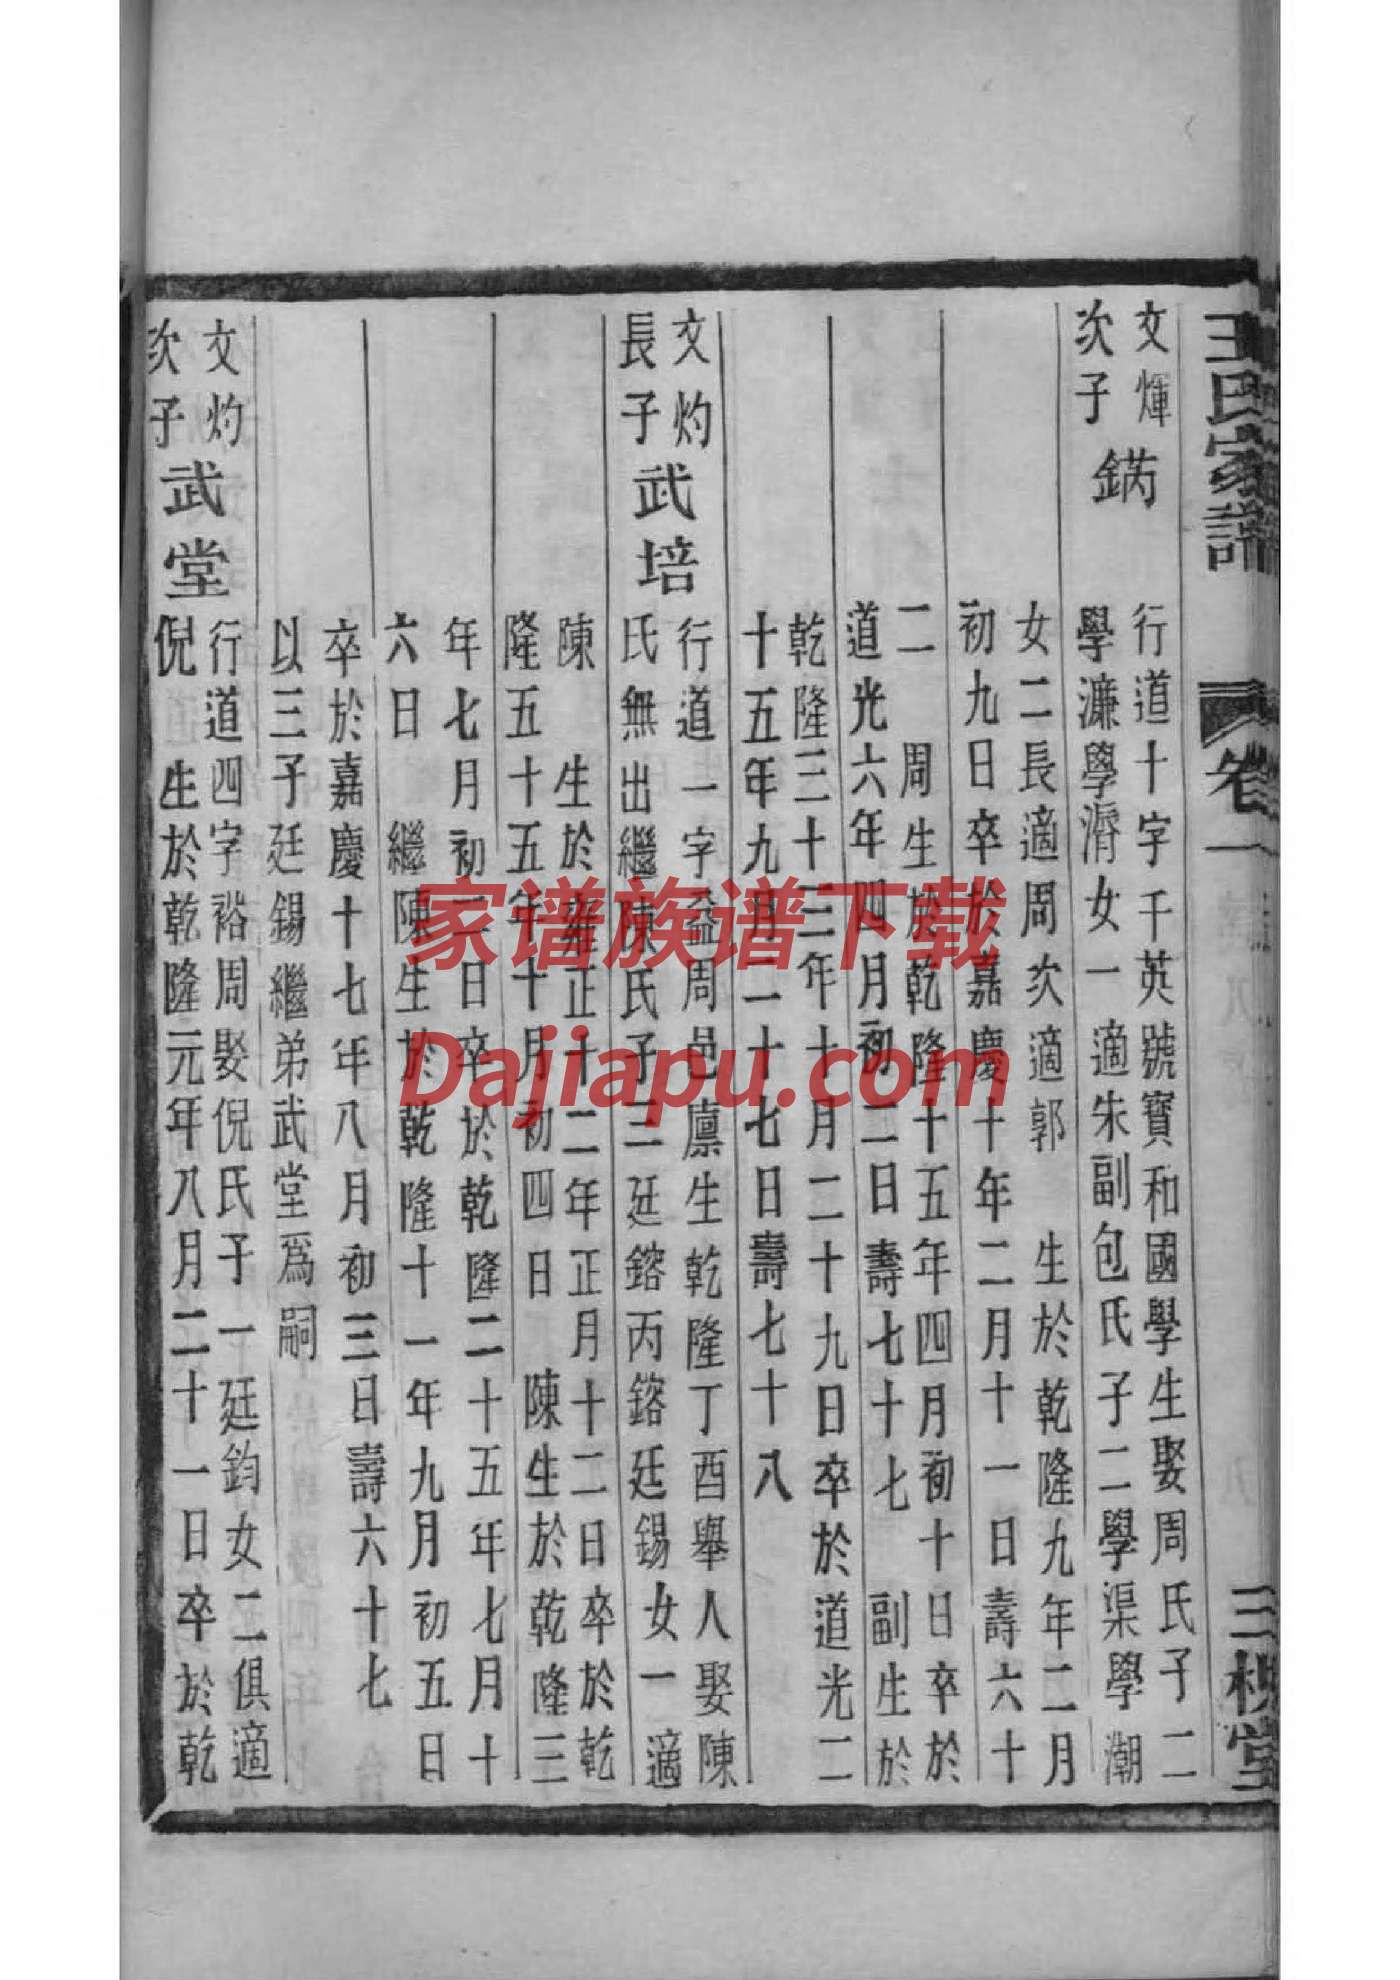 王氏家譜
卷一
三槐堂
文煇
次子
鈵
行道十字千英號寶和國學生娶周氏子二
學濂學濟女一適朱副包氏子二學渠學潮
女二長適周次適郭 生於乾隆九年二月
初九日卒於嘉慶十年二月十一日壽六十
二 周生於乾隆十五年四月初十日卒於
道光六年四月初二日壽七十七 副生於
乾隆三十三年十月二十九日卒於道光二
十五年九月二十七日壽七十八
文灼
長子
武培
行道一字益周邑廪生乾隆丁酉舉人娶陳
氏無出繼陳氏子三廷鎔丙鎔廷錫女一適
陳 生於雍正十二年正月十二日卒於乾
隆五十五年十月初四日 陳生於乾隆三
年七月初二日卒於乾隆二十五年七月十
六日 繼陳生於乾隆十一年九月初五日
卒於嘉慶十七年八月初三日壽六十七
以三子廷錫繼弟武堂爲嗣
文灼
次子
武堂
行道四字裕周娶倪氏子一廷鈞女二俱適
倪 生於乾隆元年八月二十一日卒於乾
家谱族谱下载
Dajiapu.com